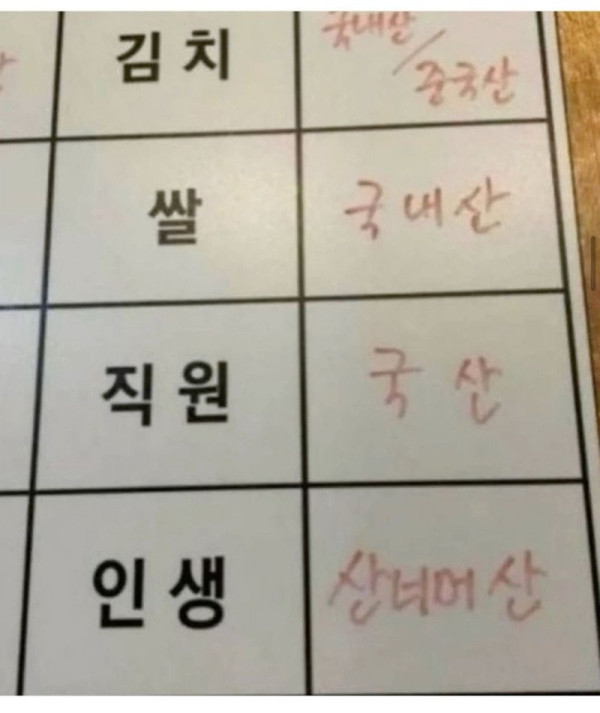 김치 국내산/
중국산
쌀 국내산
직원 국산
인생 산너머 산